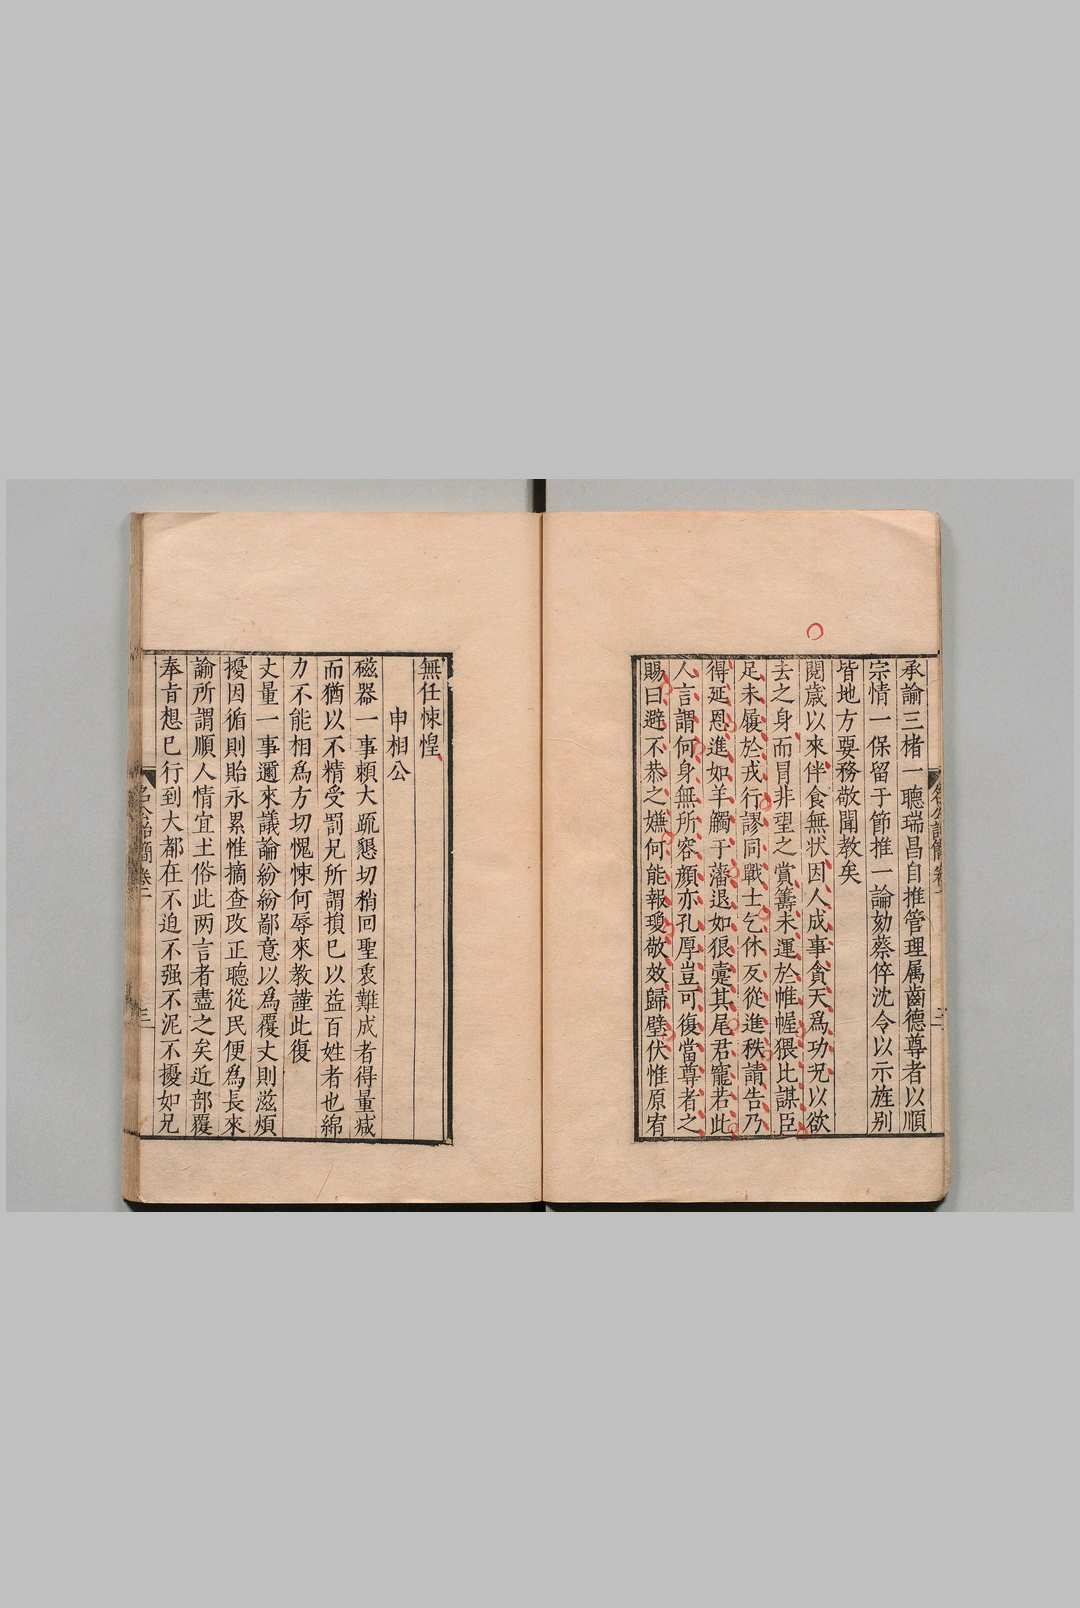 承諭三楮一聽瑞昌自推管理属齒德尊者以順
宗情一保留于節推一論劾蔡倅沈令以示旌别
皆地方要務敬聞教矣
閱歲以來伴食無状因人成事貪天爲功况以欲
去之身而冒非望之賞籌未運於帷幄猥比謀臣
足未履於戎行謬同戰士乞休反從進秩請告乃
得延恩進如羊觸于藩退如狼疐其尾君寵若此
人言謂何身無所容顔亦孔厚豈可復當尊者之
賜曰避不恭之嫌何能報瓊敬效歸璧伏惟原宥
無任悚惶
申相公
磁器一事頼大疏懇切稍回聖衷難成者得量减
而猶以不精受罰兄所謂損巳以益百姓者也綿
力不能相爲方切愧悚何辱來教謹此復
丈量一事邇來議論紛紛鄙意以爲覆丈則滋煩
擾因循則貽永累惟摘查改正聽從民便爲長來
諭所謂順人情宜土俗此两言者盡之矣近部覆
奉旨想巳行到大都在不迫不强不泥不擾如兄
名公貽牘卷一
三